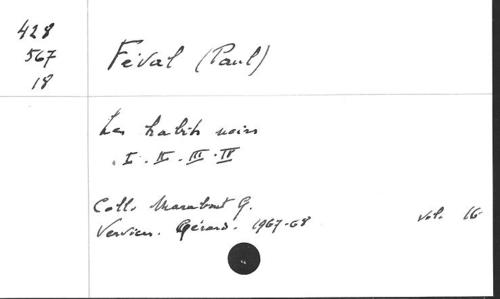 428
567
18
Féval (Paul)
Les habits noirs
. I . II . III . IV
Coll. Marabout G.
Verviers. Gérard. 1967-68
vol. 16